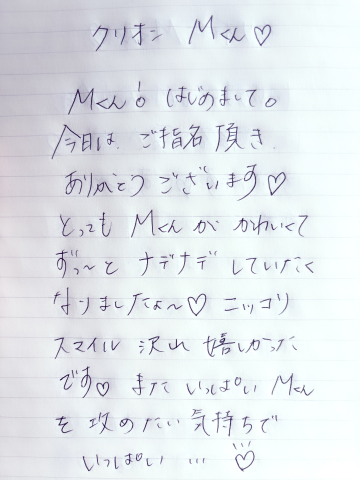 クリオネ Mくん♡
Mくん!はじめまして。
今日は、ご指名頂き
ありがとうございます♡
とっても Mくんが かわいくて
ずっ〜と ナデナデ していたく
なりましたよ〜♡ ニッコリ
スマイル 沢山 嬉しかった
です♡ また いっぱい Mくん
を 攻めたい 気持ちで
いっぱい … ♡